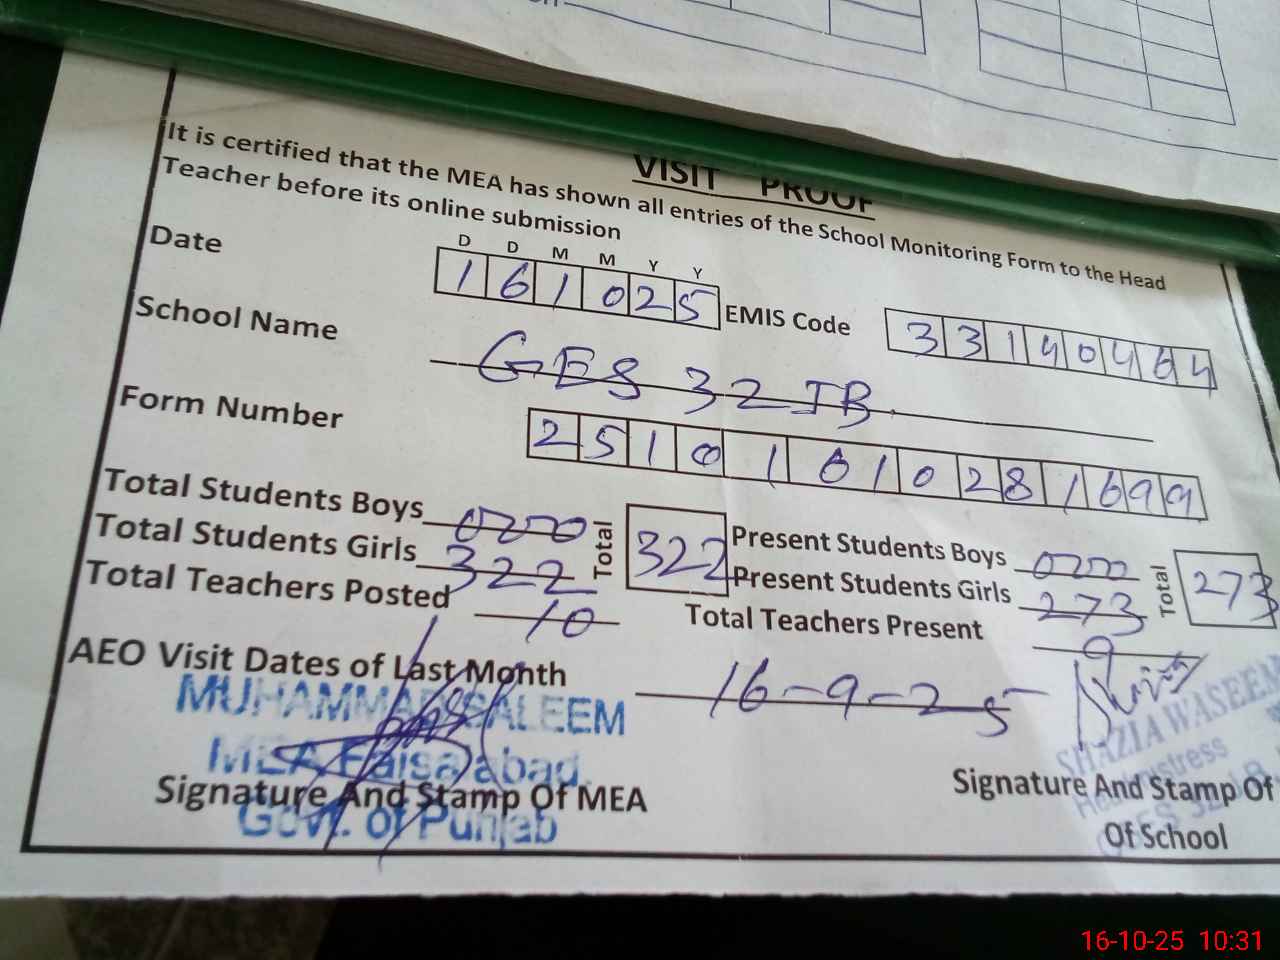 VISIT PROOF
It is certified that the MEA has shown all entries of the School Monitoring Form to the Head
Teacher before its online submission
D D M M Y Y
Date 161025 EMIS Code 33140464
School Name GES 32 JB
Form Number 25101610281699
Total Students Boys 000 Total 322 Present Students Boys 000 Total 273
Total Students Girls 322 Present Students Girls 273
Total Teachers Posted 10 Total Teachers Present 9
AEO Visit Dates of Last Month 16-9-25
MUHAMMAD SALEEM
MEA Faisalabad
Govt. of Punjab
Signature And Stamp Of MEA
SHAZIA WASEEM
Headmistress
GES 32 JB
Signature And Stamp Of
Of School
16-10-25 10:31